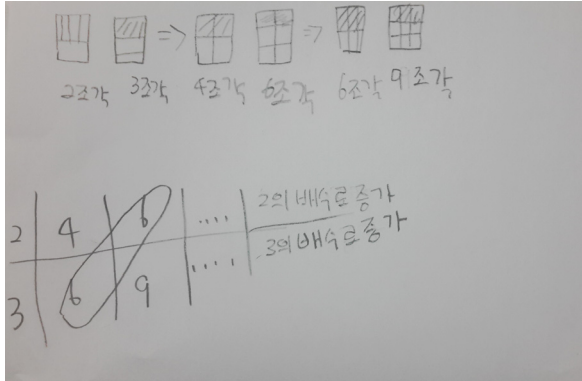 => =>
2조각 3조각 4조각 6조각 6조각 9조각
2 4 6 .... 2의 배수로 증가
3 6 9 .... 3의 배수로 증가